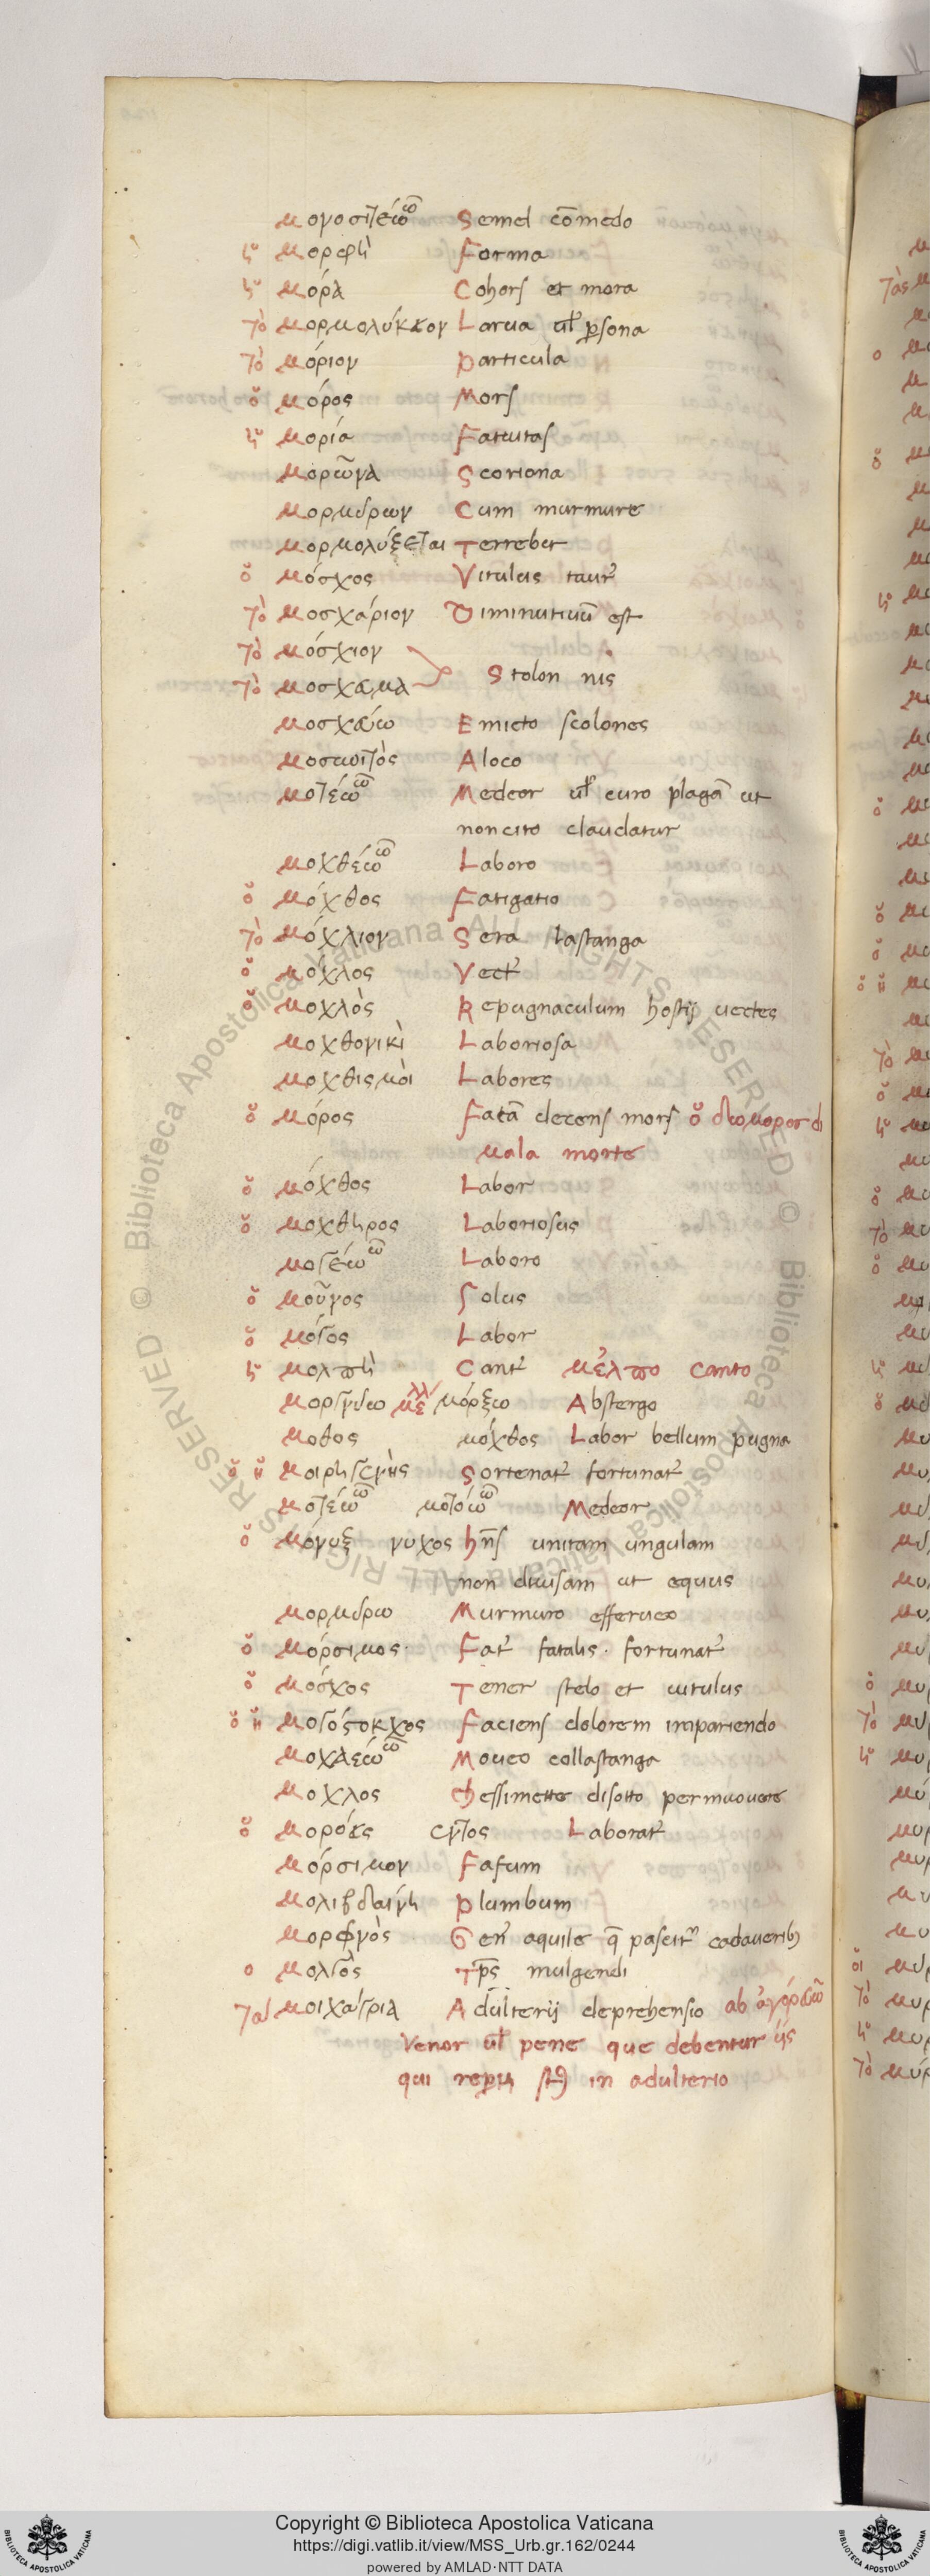 μονοσιτέω ῶ Semel cōmedo
ἡ μορφὴ Forma
ἡ μόρα Cohors et mora
τὸ μορμολύκκον Larua ul̃ ꝑsona
τὸ μόριον Particula
ὁ μόρος Mors
ἡ μορία Fatuitas
μορῶνα Scoriona
μορμύρων Cum murmure
μορμολύξεται Terrebit
ὁ μόσχος Vitulus
τὸ μοσχάριον Diminutiuū est
τὸ μόσχιον
τὸ μοσχαμα Stolon nis
μοσχαύω Emicto scolones
Aloco
μοτέω ῶ Medeor ul̃ curo plagā ut
non cito claudatur
μοχθέω ῶ Laboro
ὁ μόχθος Fatigatio
τὸ μόχλιον Sera lastanga
ὁ μόχλος Vect
ὁ μοχλὸς Repugnaculum hostij uectes
μοχθονικὶ Laboriosa
μοχθισμόι Labores
ὁ μόρος decens mors
mala morte
ὁ μόχθος Labor
ὁ μοχθηρος Laboriosus
μογέω ῶ Laboro
ὁ μοῦνος Solus
ὁ μόγος Labor
ἡ μολπὴ Cant μέλπο canto
μοργνύω μόρξω Abstergo
μοθος μόχθος Labor bellum pugna
ὁ ἡ Sortenat fortunat
μοτέω ῶ μοτόω ῶ Medeor
ὁ μόνυξ νυχος hñs unitam ungulam
non diuisam ut equus
μορμύρω Murmuro efferueo
ὁ μόρσιμος Fat fatalis. fortunat
ὁ μόσχος Tener stelo et uitulus
ὁ ἡ μογόστοκχος Faciens dolorem impariendo
μοχλεώω ῶ Moueo collastanga
μοχλος Chessimette disotto permuouere
ὁ Laborat
μόρσιμον Fafum
μολιβδαίνη Plumbum
μορφνὸς Gen̄ aquile q̄ pascit᷑ cadauerib᷒
ο μολγὸς mulgendi
μοιχάγρια Adulterij deprehensio ab
Venor ul̃ pene que debentur ijs
qui in adulterio
BIBLIOTECA APOSTOLICA VATICANA
Copyright © Biblioteca Apostolica Vaticana
https://digi.vatlib.it/view/MSS_Urb.gr.162/0244
powered by AMLAD·NTT DATA
BIBLIOTECA APOSTOLICA VATICANA